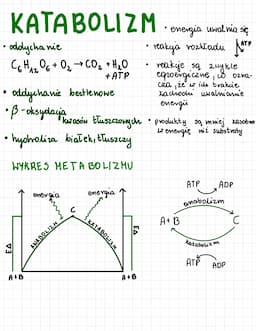 KATABOLIZM
• energia uwalnia się
ATP
• oddychanie
C₆H₁₂O₆ + O₂ → CO₂ + H₂O
+ ATP
• oddychanie beztlenowe
• β-oksydacja
kwasów tłuszczowych
• hydroliza białek, tłuszczy
• reakcja rozkładu
• reakcje są zwykle
egzoergiczne, co ozna-
cza, że w ich trakcie
zachodzi uwalnianie
energii
• produkty są mniej zasobne
w energię niż substraty
WYKRES METABOLIZMU
energia
energia
C
ANABOLIZM
KATABOLIZM
E
A+B
A+B
ATP
ADP
anabolizm
A+B
C
katabolizm
ATP
ADP